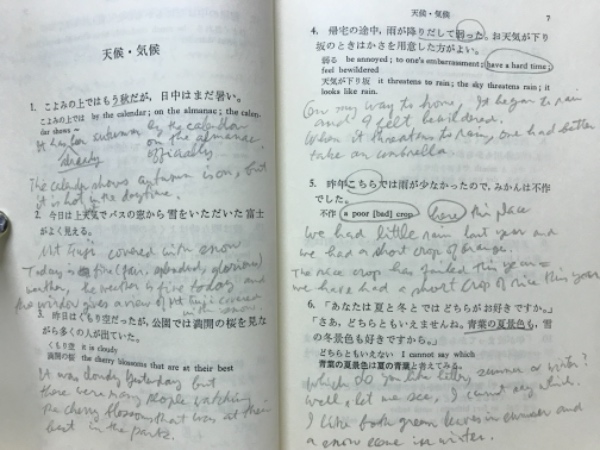 天候・気候
1. こよみの上ではもう秋だが，日中はまだ暑い。
こよみの上では by the calendar; on the almanac; the calen-
dar shows ~
It has been autumn by the calendar
already on the almanac.
officially
The calendar shows autumn is on, but
it is hot in the daytime.
2. 今日は上天気でバスの窓から雪をいただいた富士
がよく見える。
Mt Fuji covered with snow
Today fine (fair, splendid, glorious)
weather, the weather is fine today and
the window gives a view of Mt Fuji covered
with snow.
3. 昨日はくもり空だったが，公園では満開の桜を見な
がら多くの人が出ていた。
くもり空 it is cloudy
満開の桜 the cherry blossoms that are at their best
It was cloudy yesterday but
there were many people watching
the cherry blossoms that was at their
best in the parks.
天候・気候 7
4. 帰宅の途中，雨が降りだして弱った。お天気が下り
坂のときはかさを用意した方がよい。
弱る be annoyed; to one's embarrassment; have a hard time;
feel bewildered
天気が下り坂 it threatens to rain; the sky threatens rain; it
looks like rain
On my way to home, It began to rain
and I felt bewildered.
When it threatens to rain, one had better
take an umbrella
5. 昨年こちらでは雨が少なかったので，みかんは不作
でした。
不作 a poor [bad] crop here this place
We had little rain last year and
we had a short crop of orange.
The rice crop has failed this year =
we have had a short crop of rice this year
6. 「あなたは夏と冬とではどちらがお好きですか。」
「さあ，どちらともいえませんね。青葉の夏景色も，雪
の冬景色も好きですから。」
どちらともいえない I cannot say which
青葉の夏景色は夏の青葉と考えてみる。
Which do you like better, summer or winter?
Well, let me see, I cannot say which.
I like both green leaves in summer and
a snow scene in winter.